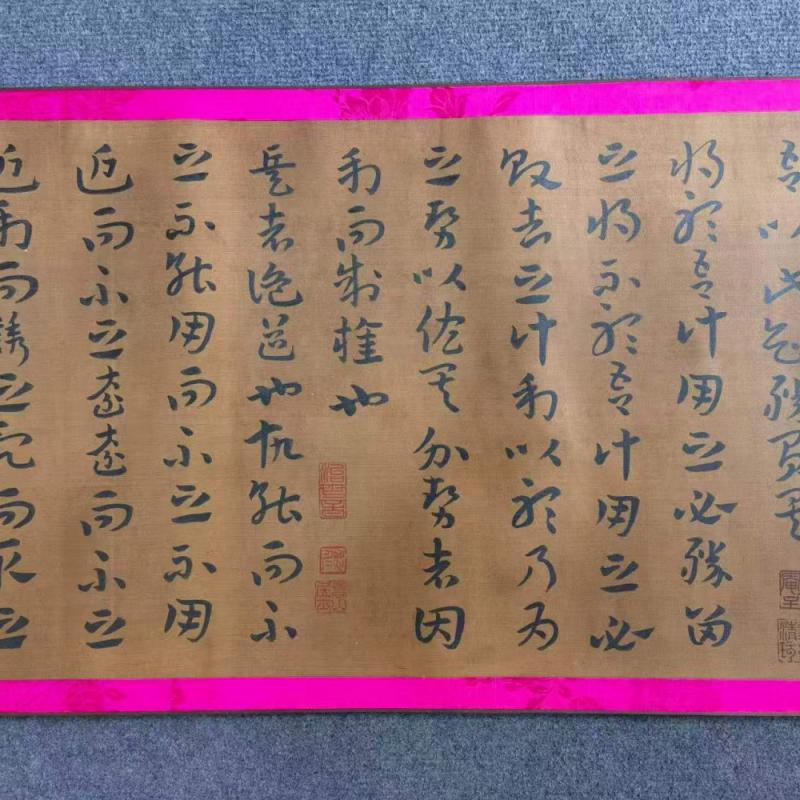 吾以此知勝負矣
將聽吾計用之必勝留
之將不聽吾計用之必
敗去之計利以聽乃為
之勢以佐其外勢者因
利而制權也
兵者詭道也故能而示
之不能用而示之不用
近而示之遠遠而示之
近利而誘之亂而取之